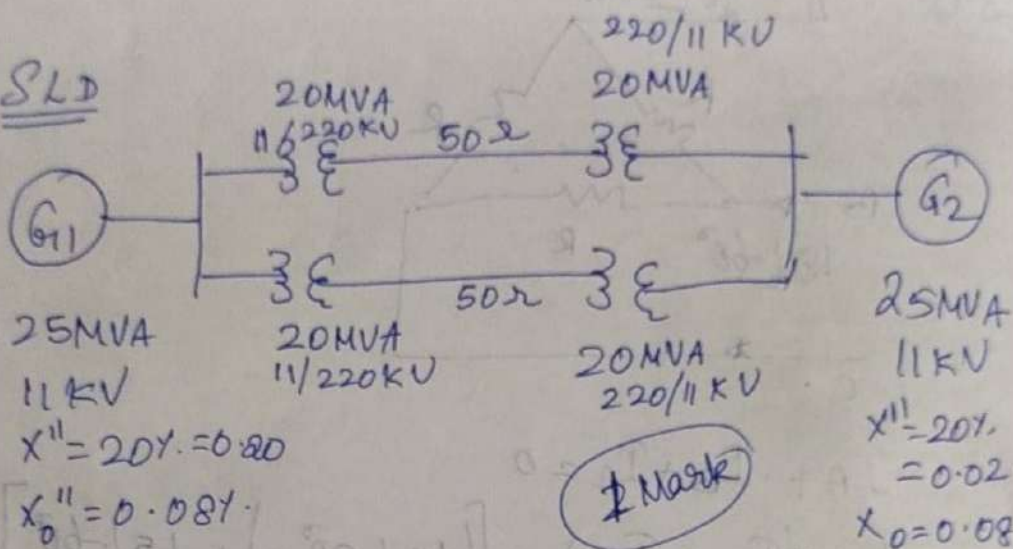 SLD
220/11 KV
20MVA
11/220KV
20MVA
50Ω
G1
G2
50Ω
25MVA
11 KV
X" = 20%. = 0.20
X₀" = 0.08%.
20MVA
11/220KV
20MVA
220/11 KV
1 Mark
25MVA
11 KV
X" = 20%.
= 0.02
X₀ = 0.08